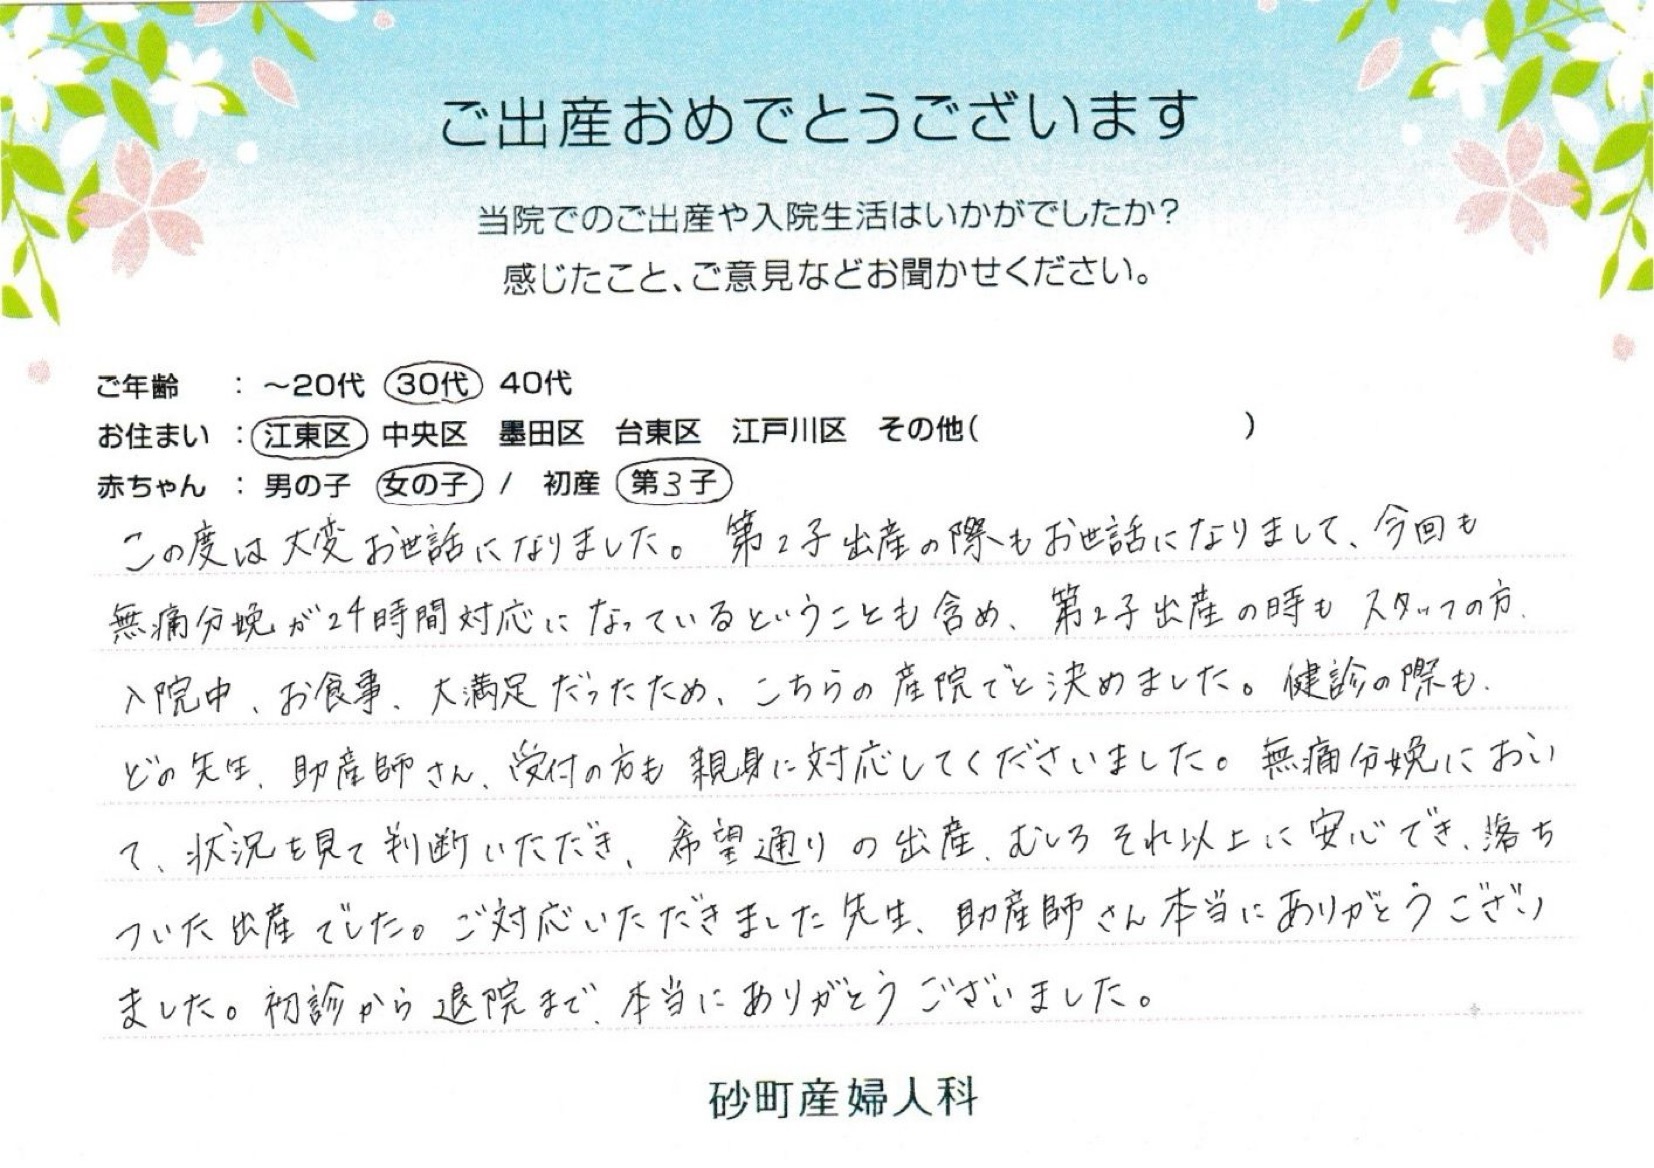 ご出産おめでとうございます
当院でのご出産や入院生活はいかがでしたか?
感じたこと、ご意見などお聞かせください。
ご年齢 : ～20代 30代 40代
お住まい : 江東区 中央区 墨田区 台東区 江戸川区 その他( )
赤ちゃん : 男の子 女の子 / 初産 第3子
この度は大変お世話になりました。第2子出産の際もお世話になりまして、今回も
無痛分娩が24時間対応になっているということも含め、第2子出産の時もスタッフの方、
入院中、お食事、大満足だったため、こちらの産院でと決めました。健診の際も、
どの先生、助産師さん、受付の方も親身に対応してくださいました。無痛分娩におい
て、状況を見て判断いただき、希望通りの出産、むしろそれ以上に安心でき、落ち
ついた出産でした。ご対応いただきました先生、助産師さん本当にありがとうござい
ました。初診から退院まで、本当にありがとうございました。
砂町産婦人科